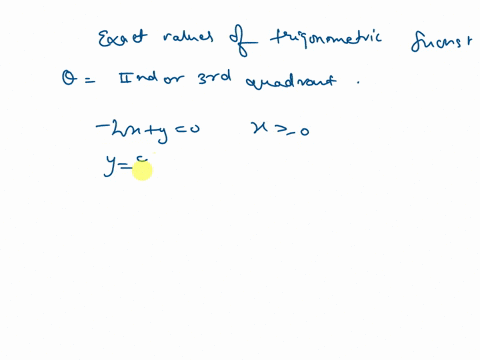 Exact values of trigonometric funcst
θ = IInd or 3rd quadrant .
-2x+y=0 x>=0
y=